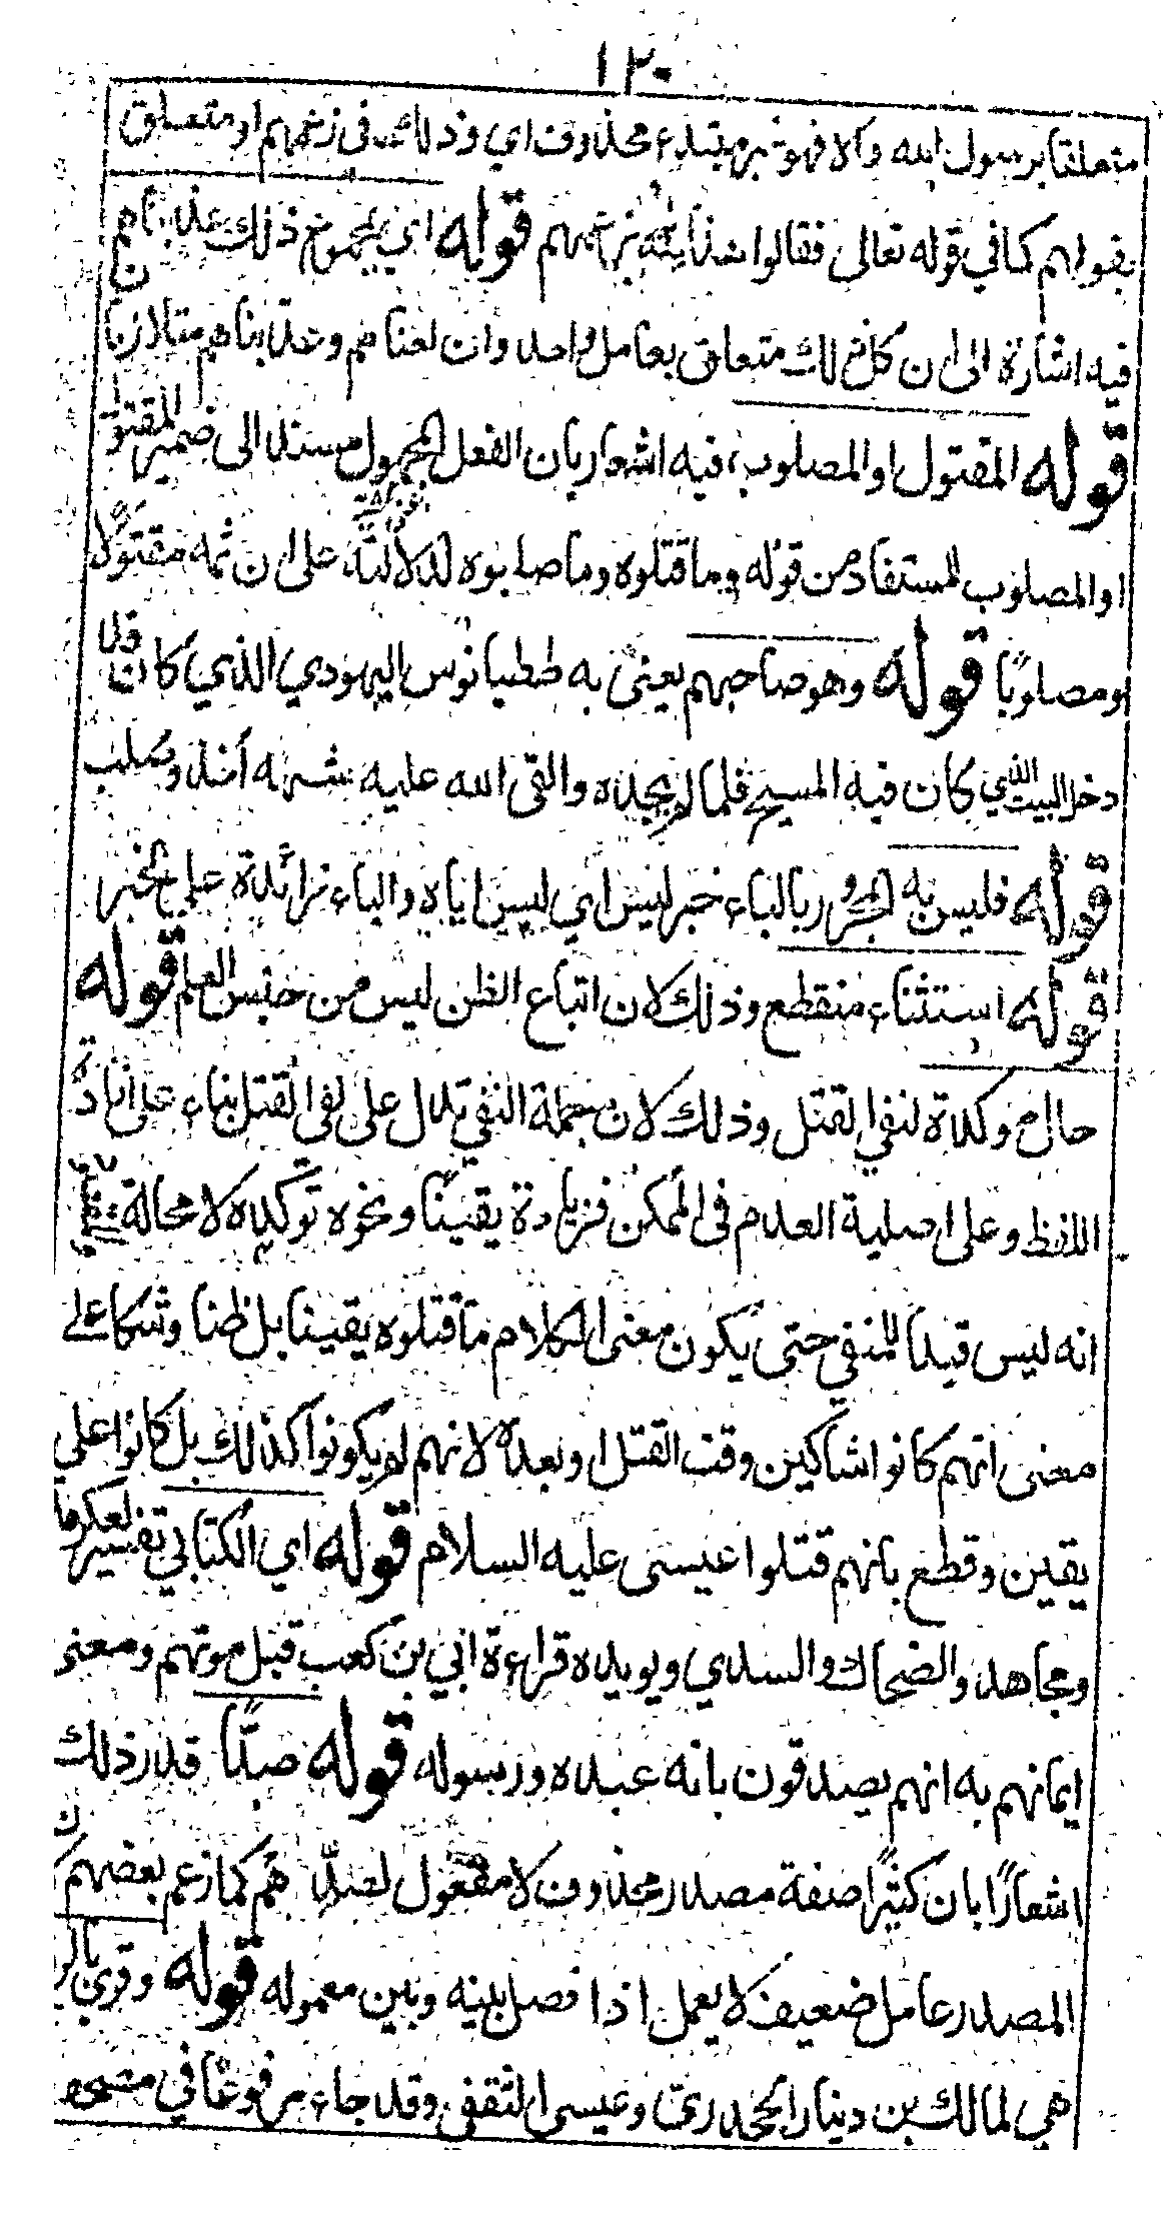 ١٣٠
متعلقا برسول الله والا فهو خبر مبتدء محذوف اي وذلك في زعمهم او متعلق
بقولهم كما في قوله تعالى فقالوا هذا لله بزعمهم قوله اي بمجموع ذلك عذبناهم
فيه اشارة الى ان كل ذلك متعلق بعامل واحد وان لعناهم وعذبناهم متلازمان
قوله المقتول او المصلوب فيه اشعار بان الفعل المجهول مسند الى ضمير المقتول
او المصلوب المستفاد من قوله وما قتلوه وما صلبوه لدلالته على ان ثمه مقتولًا
ومصلوبًا قوله وهو صاحبهم يعنى به ططيانوس اليهودي الذي كان قد
دخل البيت الذي كان فيه المسيح فلما لم يجده والقى الله عليه شبهه أخذ وصلب
قوله فليس به المجرور بالباء خبر ليس اي ليس اياه والباء زائدة على الخبر
قوله استثناء منقطع وذلك لان اتباع الظن ليس من جنس العلم قوله
حال مؤكدة لنفي القتل وذلك لان جملة النفي تدل على نفي القتل بناء على افادة
اللفظ وعلى اصلية العدم فى الممكن فزيادة يقينًا ونحوه توكده لا محالة
انه ليس قيدًا للمنفي حتى يكون معنى الكلام ما قتلوه يقينا بل ظنا وشكا على
معنى انهم كانوا شاكين وقت القتل او بعده لانهم لم يكونوا كذلك بل كانوا على
يقين وقطع بانهم قتلوا عيسى عليه السلام قوله اي الكتابي تفسير لعكرمة
ومجاهد والضحاك والسدي ويويده قراءة ابي بن كعب قبل موتهم ومعنى
ايمانهم به انهم يصدقون بانه عبده ورسوله قوله صدًّا قدر ذلك
اشعارًا بان كثيرًا صفة مصدر محذوف لا مفعول لصدهم كما زعم بعضهم
المصدر عامل ضعيف لا يعمل اذا فصل بينه وبين معموله قوله وقرئ
هي لمالك بن دينار الجحدرى وعيسى الثقفى وقد جاء مرفوعًا في مصحف